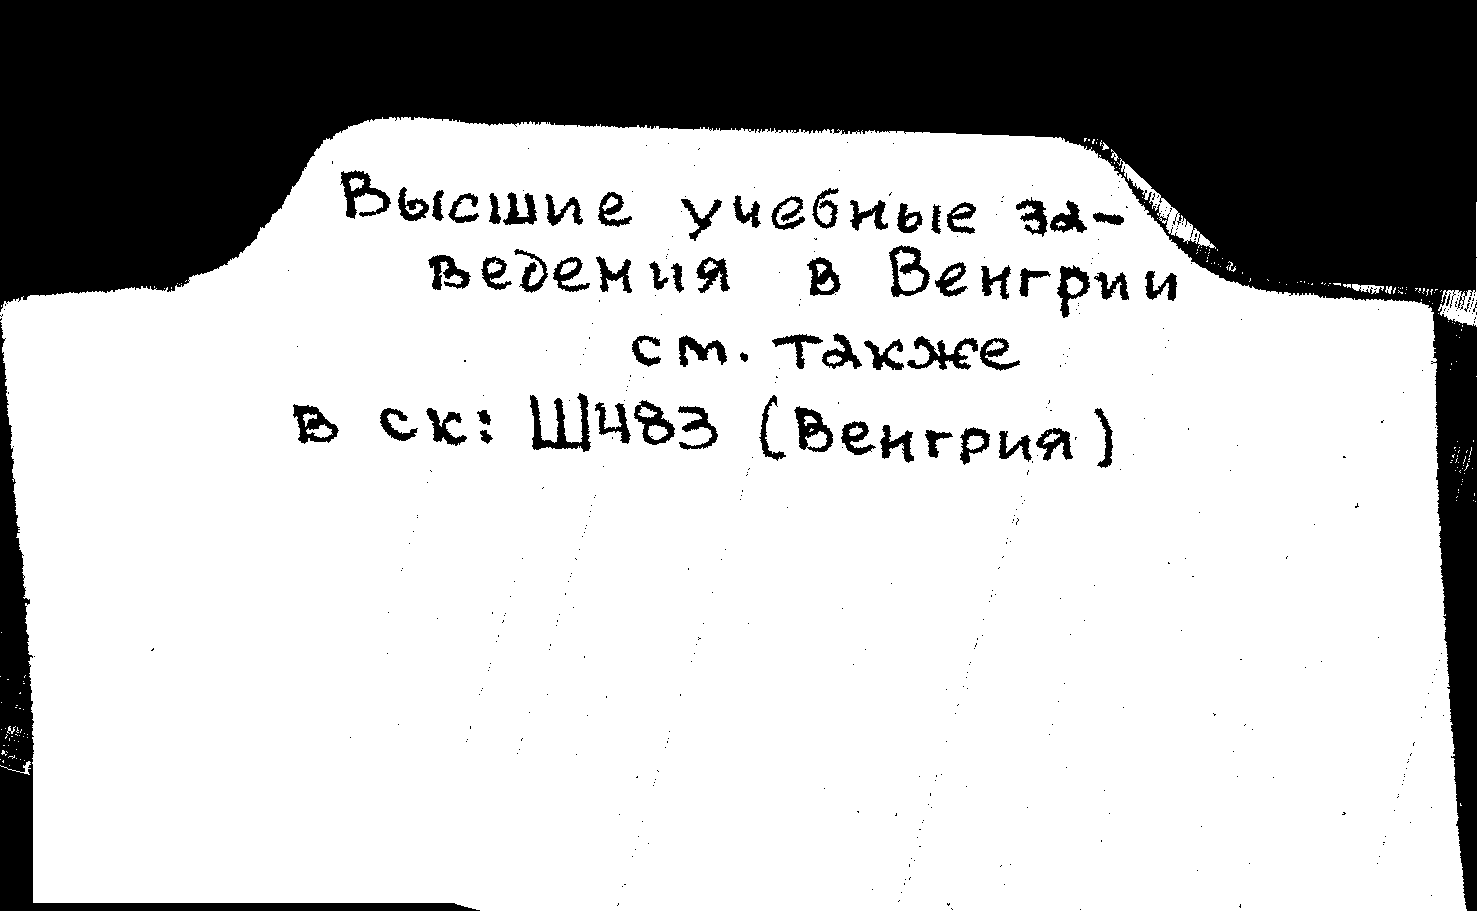 Высшие учебные за-
ведения в Венгрии
см. также
в ск: Ш483 (Венгрия)